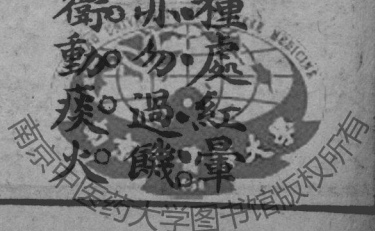 種處紅暈
亦勿過饑
衛動痰火
南京中医药大学图书馆版权所有